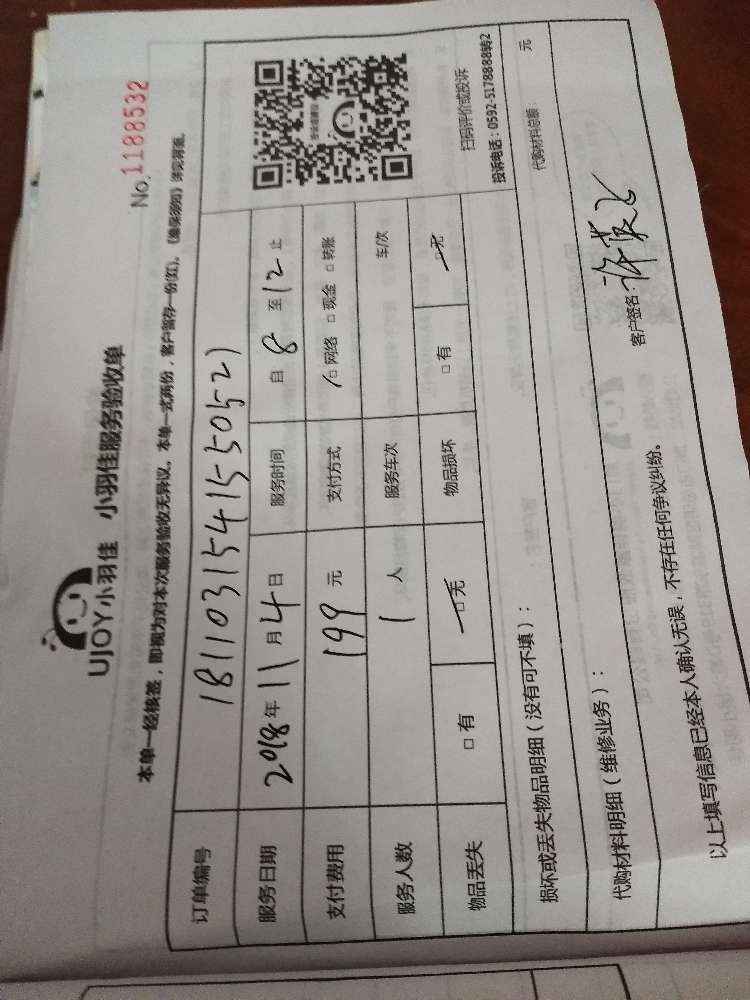 UJOY小羽佳 小羽佳服务验收单
No.1188532
本单一经核签，即视为对本次服务验收无异议。本单一式两份，客户留存一份(红)。《维保须知》详见背面。
订单编号 1811031541550521
服务日期 2018年11月4日 服务时间 自8至12止
支付费用 199元 支付方式 □网络 □现金 □转账
服务人数 1人 服务车次 车/次
物品丢失 □有 □无 物品损坏 □有 □无
扫码评价或投诉
投诉电话：0592-5178888转2
损坏或丢失物品明细（没有可不填）：
代购材料明细（维修业务）： 代购材料总额： 元
以上填写信息已经本人确认无误，不存在任何争议纠纷。 客户签名：